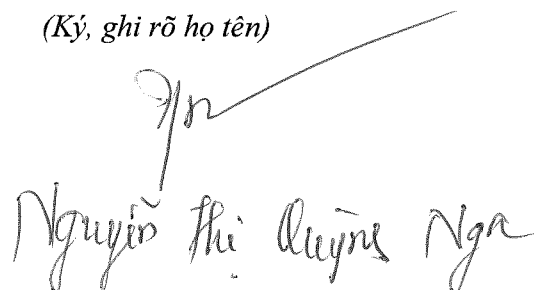 (Ký, ghi rõ họ tên)
Nguyễn Thị Quỳnh Nga